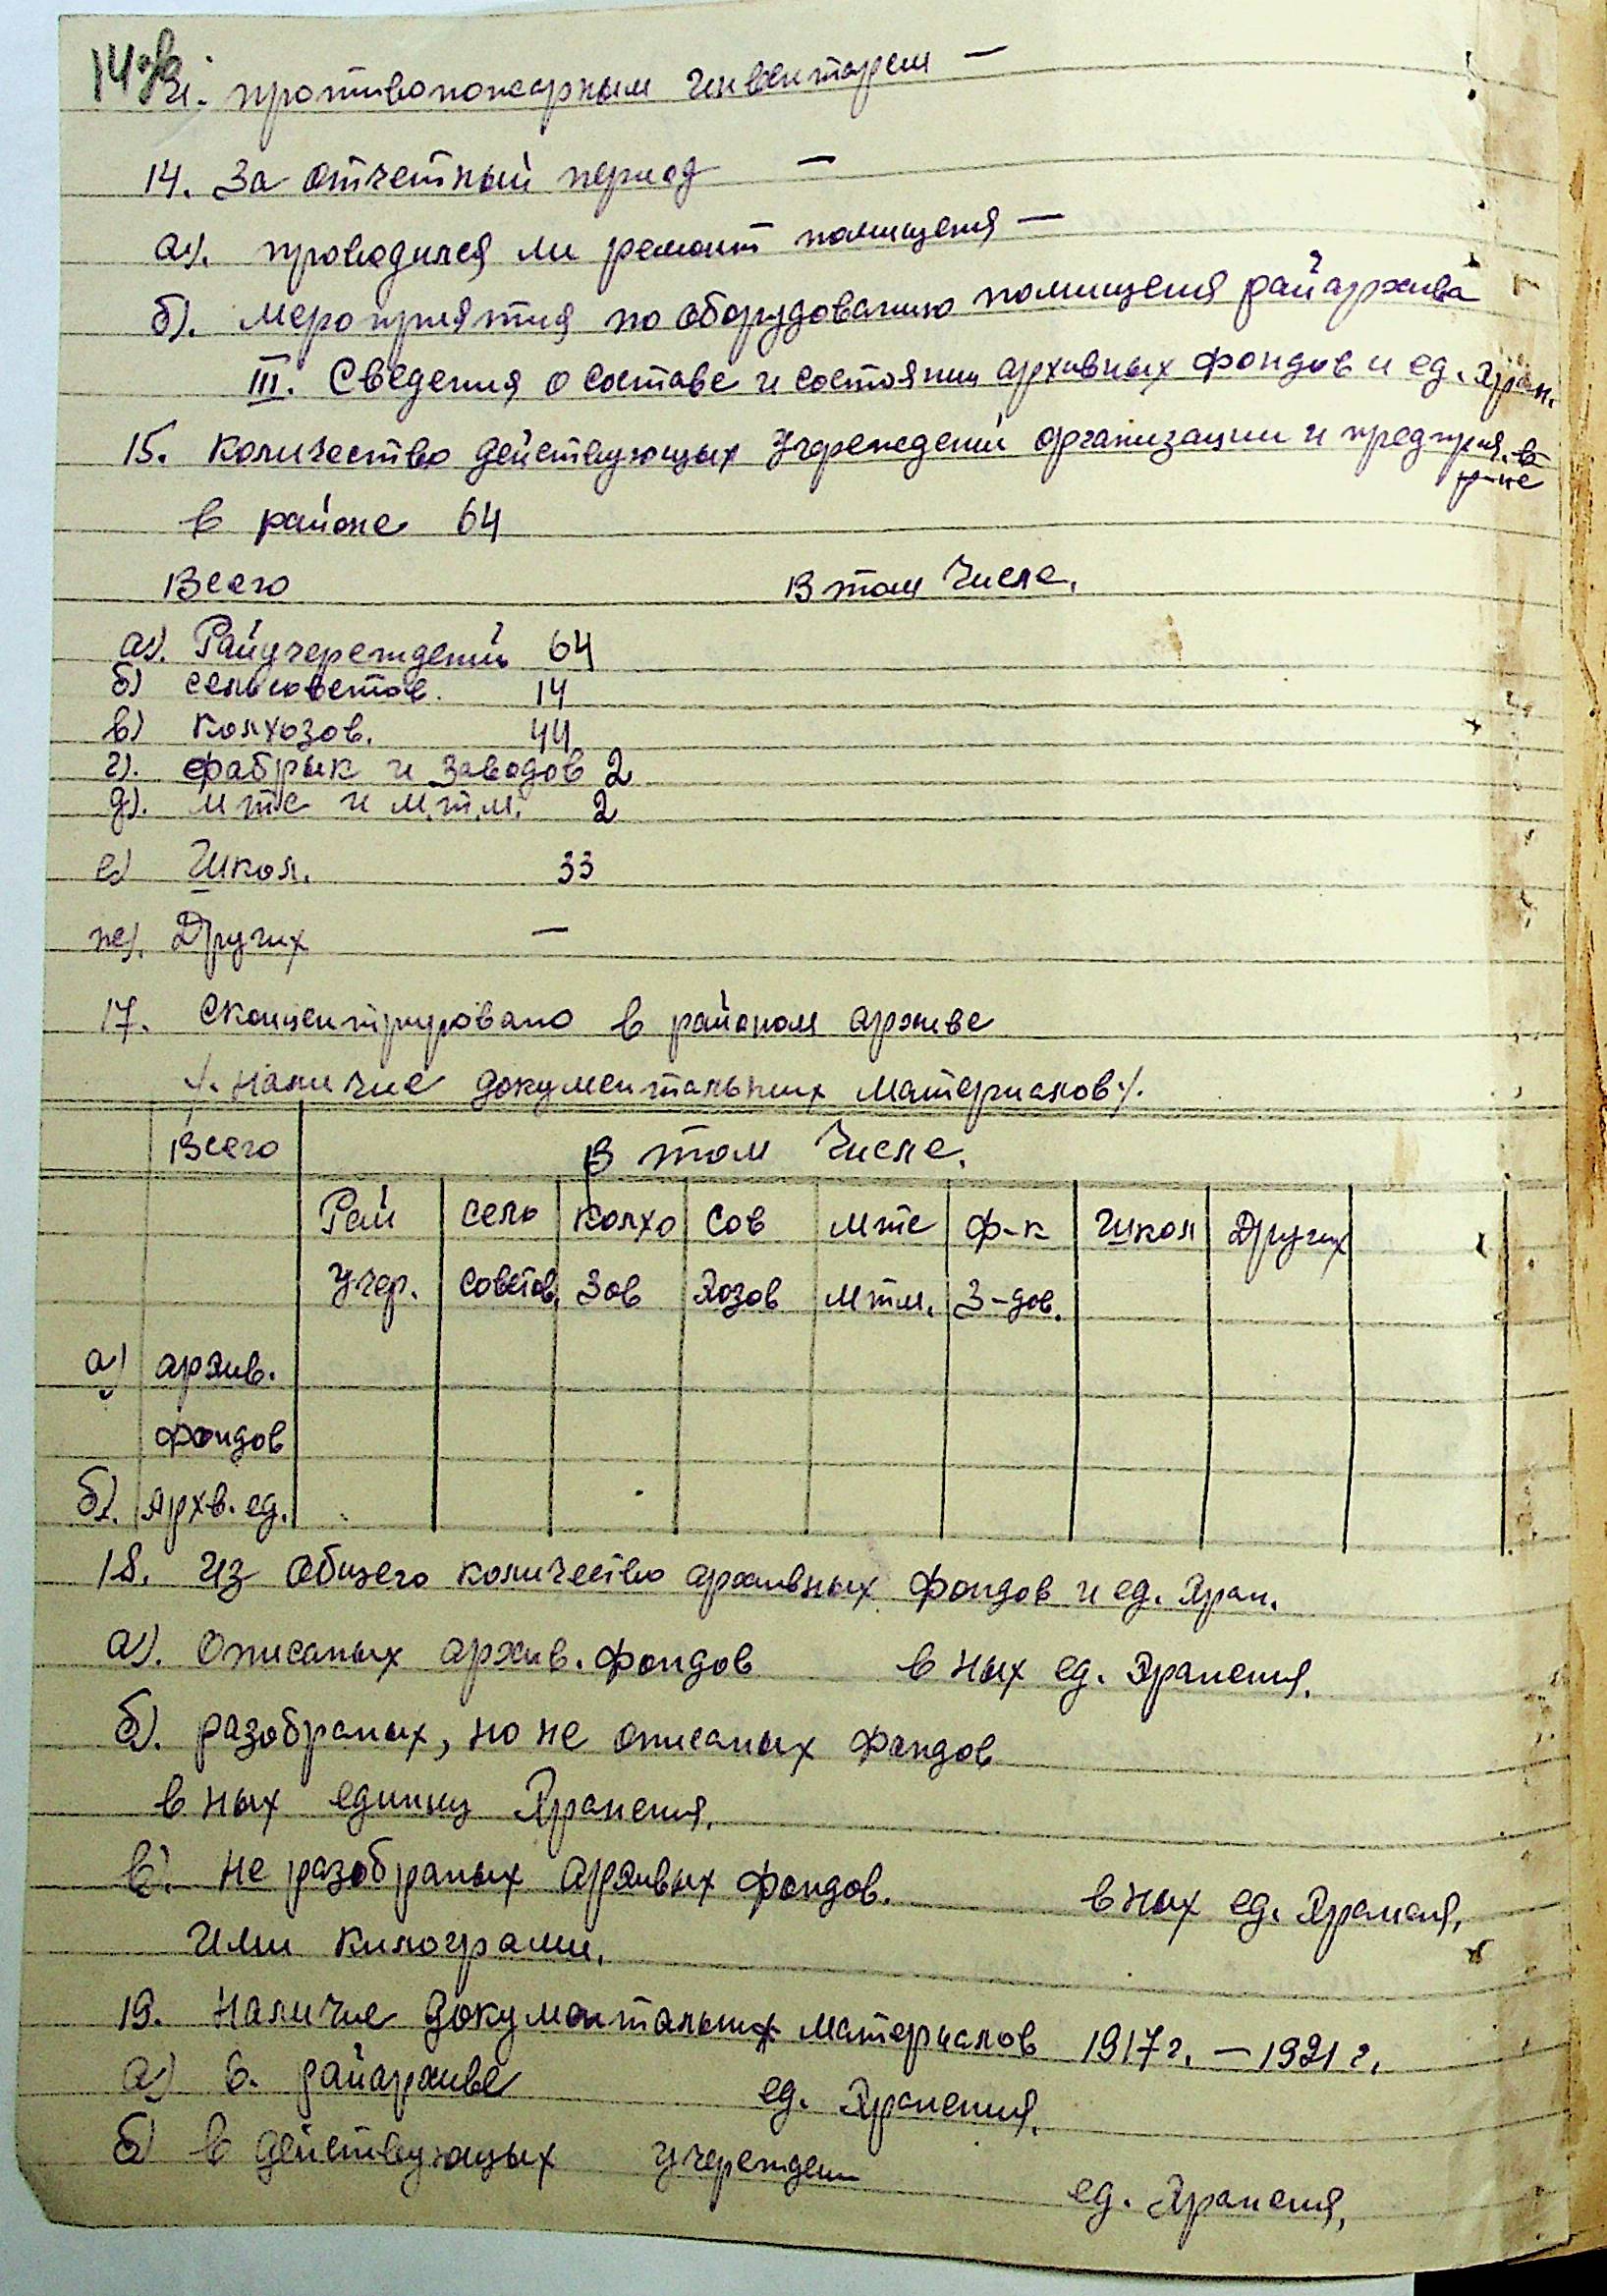 14об
и. противопожарным инвентарем —
14. За отчетный период —
а). проводился ли ремонт помищения —
б). Мероприятия по оборудованию помищения райархива
III. Сведения о составе и состоянии архивных фондов и ед. хран.
15. Количество действующих учреждений организации и предприя. в
р-не
в районе 64
Всего В том числе.
а). Райучереждений 64
б) сельсоветов. 14
в) Колхозов. 44
г). фабрык и заводов 2
д). мтс и м.т.м. 2
е) Школ. 33
ж). Других —
17. Сконцентрировано в районом архиве
/. Наличие документальных материалов ./.
Всего В том числе.
Рай сель колхо Сов Мтс ф-к Школ Других
Учер. советов. зов хозов Мтм. З-дов.
а) архив.
фондов
б). Архв. ед.
18. Из общего количество архивных фондов и ед. хран.
а). Описаных архив. фондов в ных ед. хранения.
б). разобраных, но не описаных фондов
в ных единиц хранения.
в). не разобраных архивых фондов. в ных ед. хранения,
или килограми.
19. Наличие документальных материалов 1917 г. — 1921 г.
а) в. райархиве ед. хранения.
б) в действующих учережден ед. хранения,